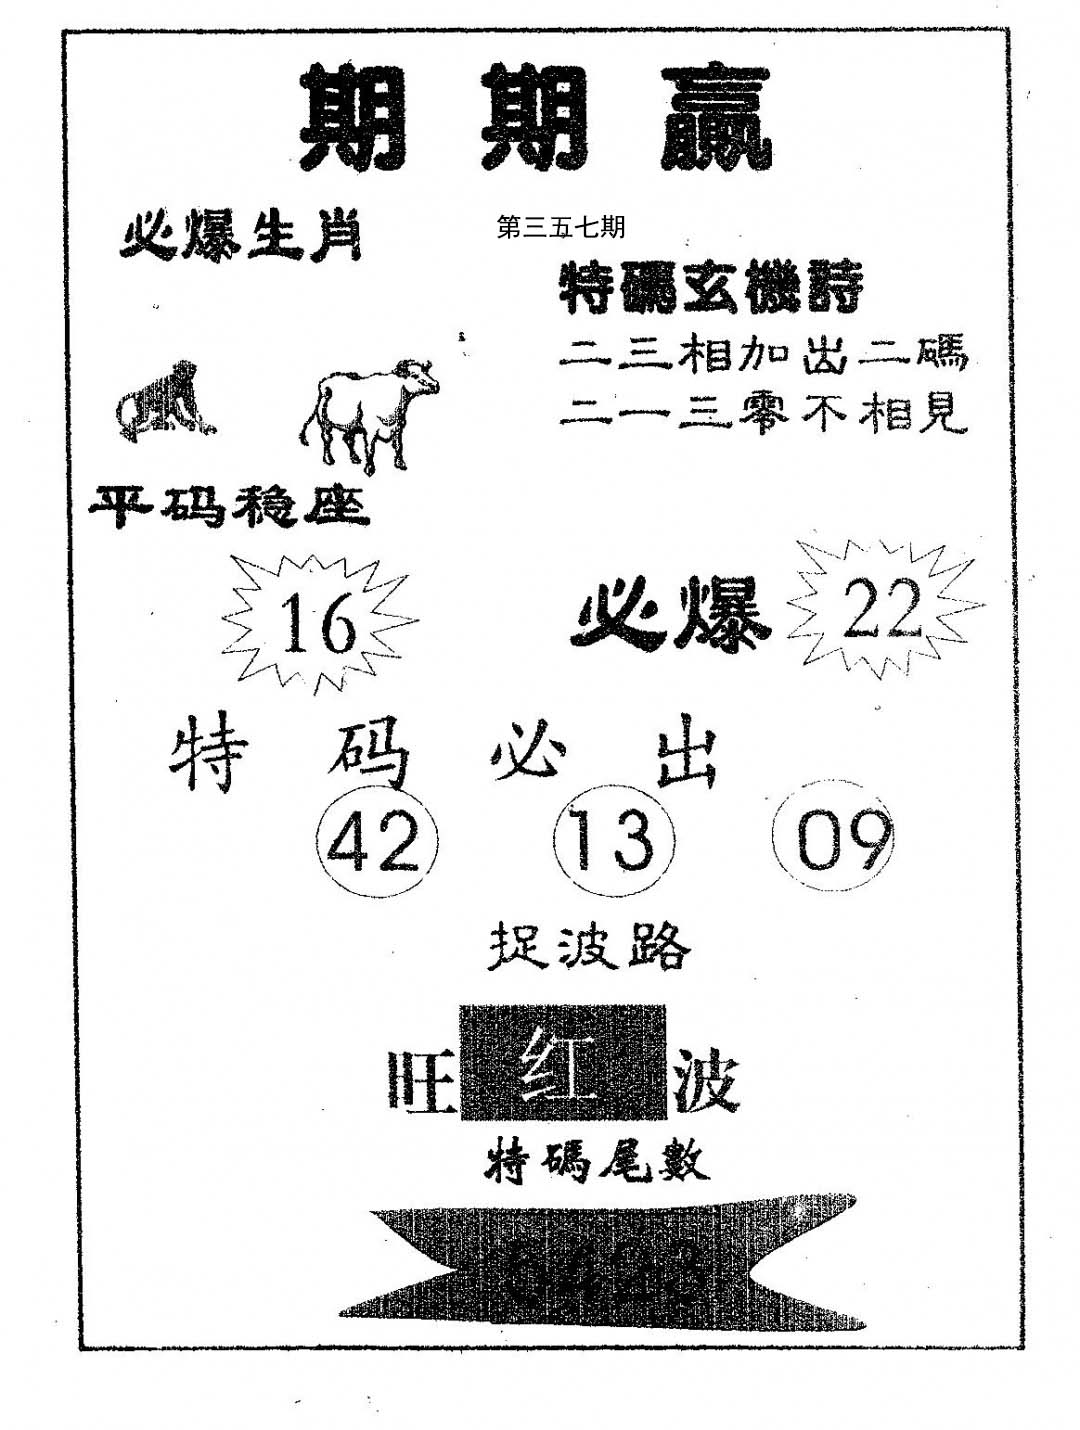 期期赢
必爆生肖
第三五七期
特碼玄機詩
二三相加出二碼
二一三零不相見
平码稳座
16
必爆 22
特码必出
42 13 09
捉波路
旺红波
特碼尾數